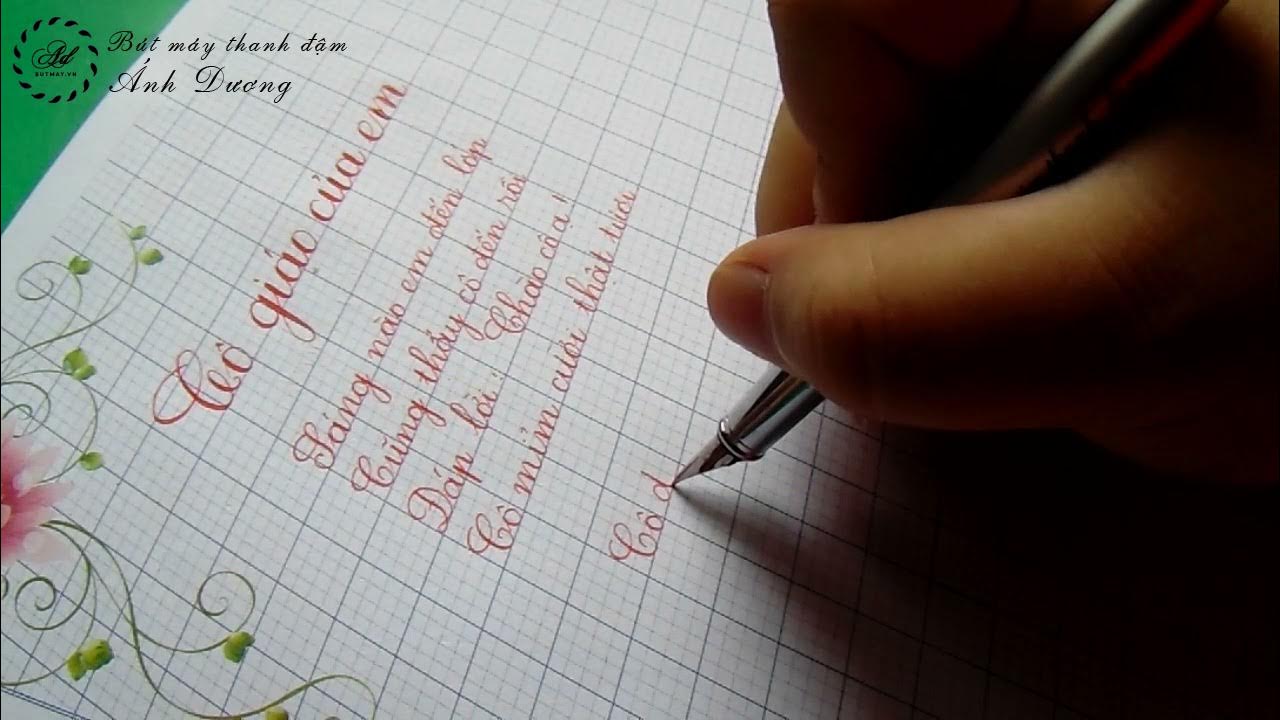 Bút máy thanh đậm
Ánh Dương
Ad
BUTMAY.VN
Cô giáo của em
Sáng nào em đến lớp
Cũng thấy cô đến rồi
Đáp lời: Chào cô ạ!
Cô mỉm cười thật tươi
Cô d